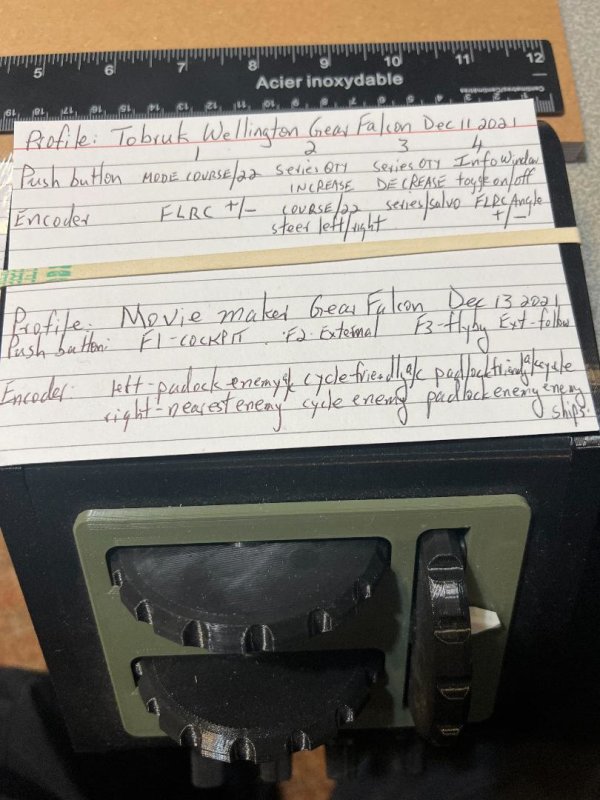 5 6 7 8 9 10 11 12
Acier inoxydable
Profile: Tobruk Wellington Gear Falcon Dec 11 2021
1 2 3 4
Push button MODE COURSE/22 Series QTY Series QTY Info Window
INCREASE DECREASE toggle on/off
Encoder FLRC +/- COURSE/22 series/salvo FLRC Angle
steer left/right +/-
Profile: Movie maker Gear Falcon Dec 13 2021
Push button: F1-COCKPIT F2-External F3-flyby Ext-follow
Encoder: left-padlock enemy a/c cycle friendly a/c padlock friendly a/c cycle
right-nearest enemy cycle enemy padlock enemy enemy
ships.